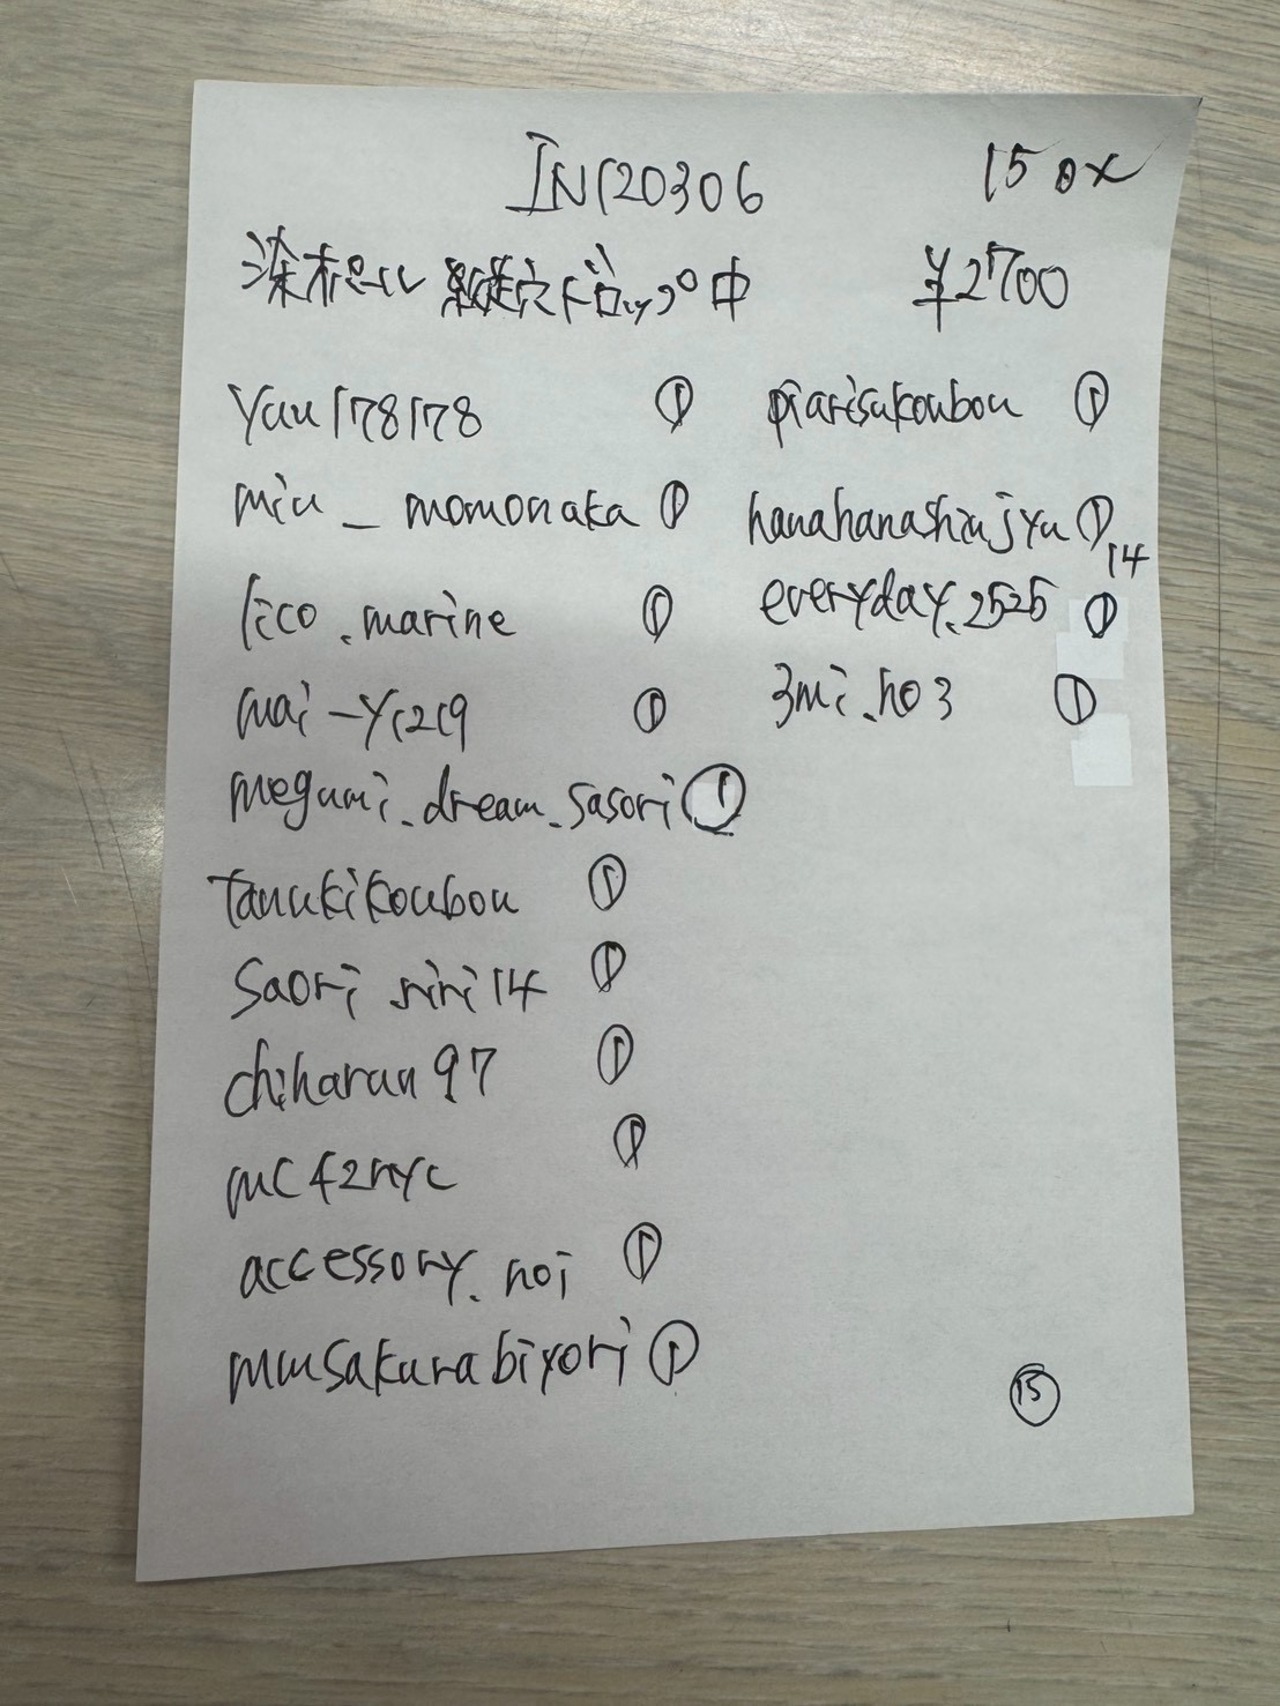 IN120306 150x
染パール 縦穴ドロップ 中 ¥2700
yuu178178 ①
miu _ momonaka ①
lico.marine ①
mai-y1219 ①
megumi.dream.sasori ①
tanukikoubou ①
saori siri14 ①
chiharun97 ①
mc42nyc ①
accessory.noi ①
mmsakurabiyori ①
piarisukoubou ①
hanahanashinjyu ①
14
everyday.2525 ①
3mi.no3 ①
⑮